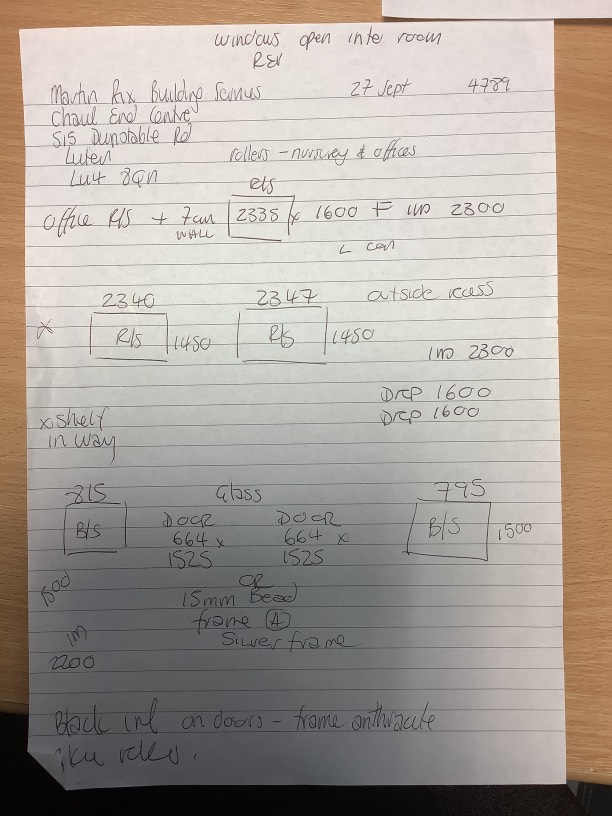 windows open into room
REV
Martin Rix Building Services 27 Sept 4789
Chaul End Centre
515 Dunstable Rd
Luton rollers - nursery & offices
Lu4 8QN
R/S
Office R/S + 7cm 2338 x 1600 F IND 2300
WALL
L con
2340 2347 outside recess
x R/S 1450 R/S 1450
IND 2300
Drop 1600
x shelf Drop 1600
in way
815 Glass 795
B/S DOOR DOOR B/S 1500
664 x 664 x
1525 1525
1500 OR
15mm Bead
frame (A)
IND Silver frame
2200
Black on doors - frame anthracite